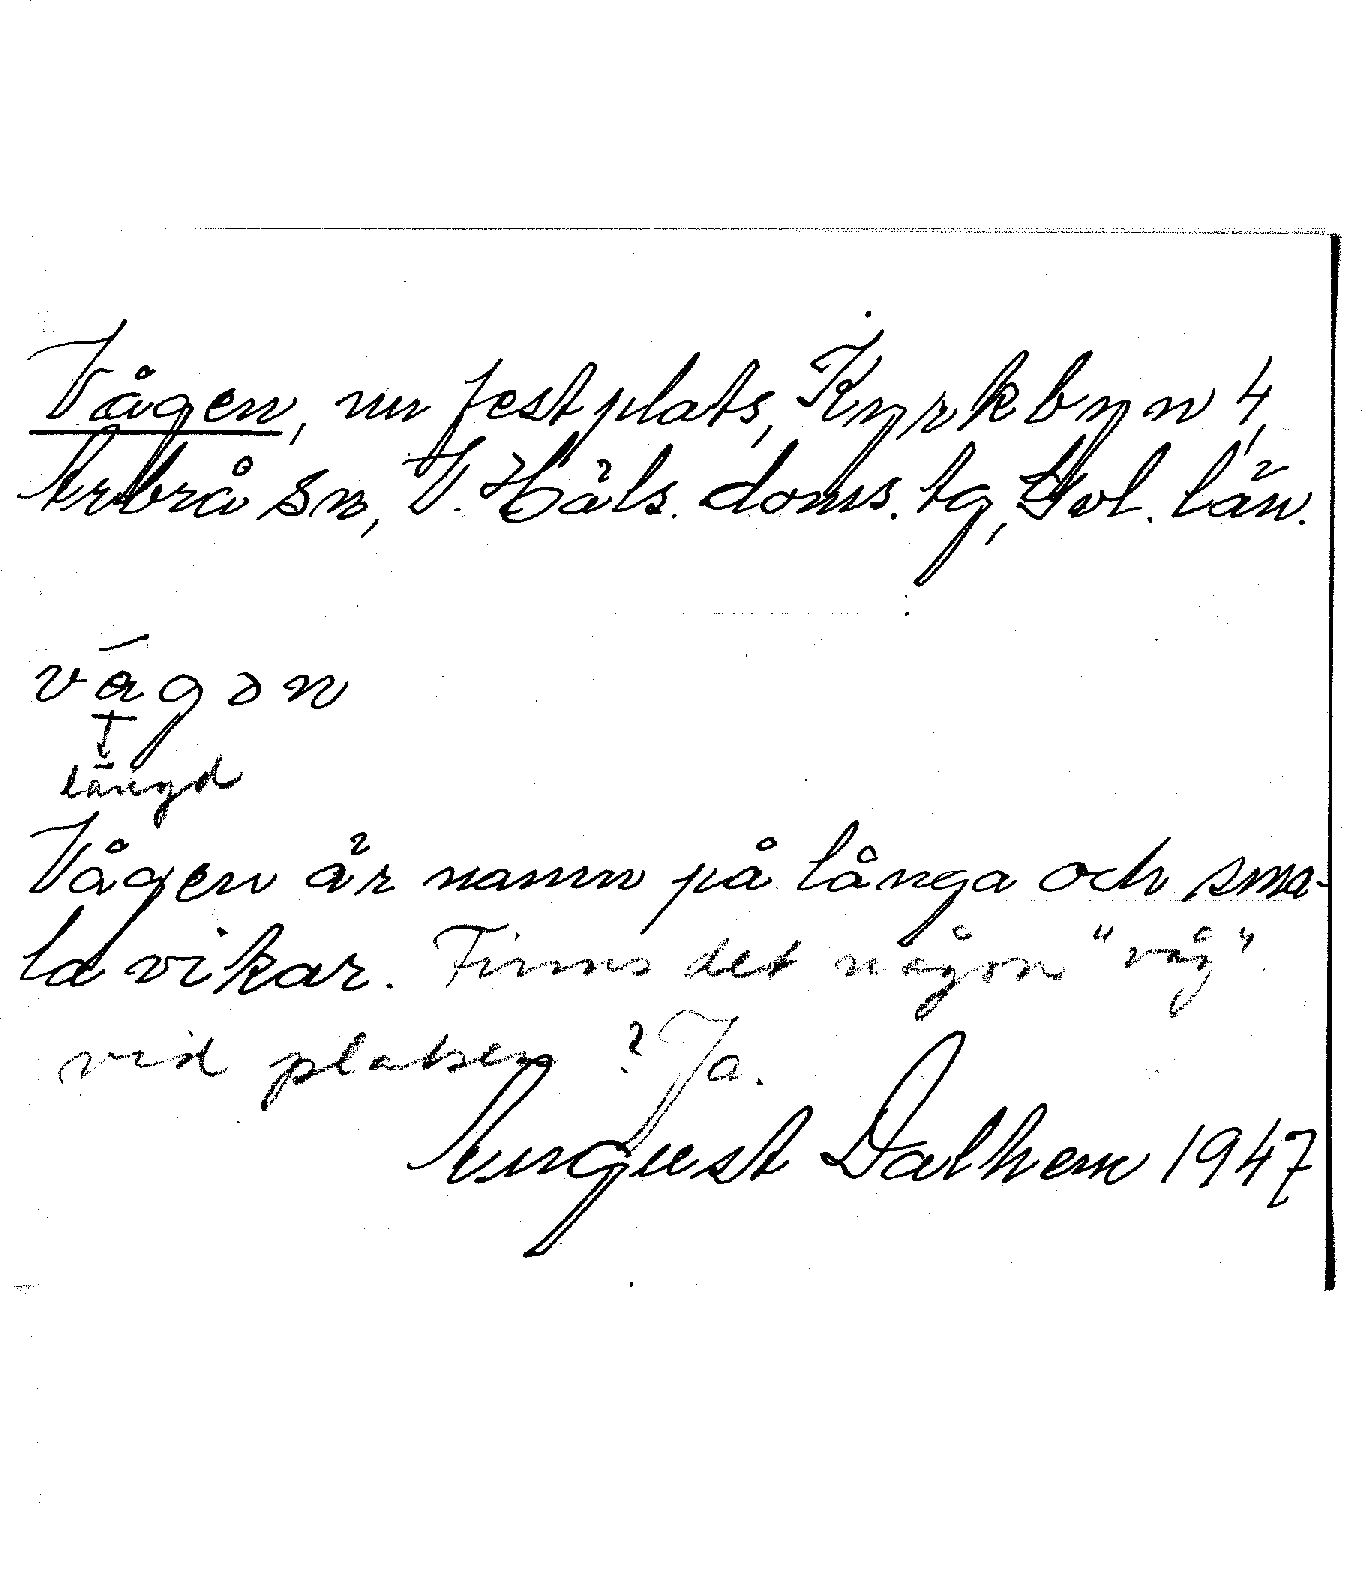 Vågen, nu festplats, Kyrkbyn 4,
Arbrå sn, V. Häls. doms. tg, Gvl. län.
vágən
längd
Vågen är namn på långa och sma-
la vikar. Finns det någon "våg"
vid platsen? Ja.
August Dalhem 1947